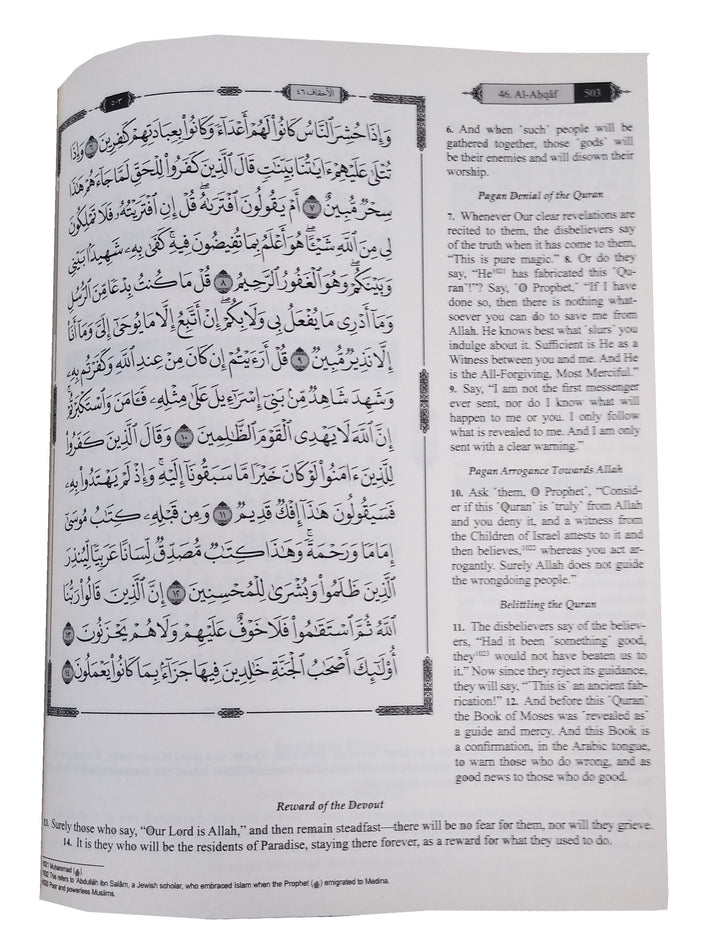 ٥٠٣
الأحقاف ٤٦
46. Al-Aḥqâf
503
وَإِذَا حُشِرَ ٱلنَّاسُ كَانُوا۟ لَهُمْ أَعْدَآءً وَكَانُوا۟ بِعِبَادَتِهِمْ كَـٰفِرِينَ ٦ وَإِذَا
تُتْلَىٰ عَلَيْهِمْ ءَايَـٰتُنَا بَيِّنَـٰتٍ قَالَ ٱلَّذِينَ كَفَرُوا۟ لِلْحَقِّ لَمَّا جَآءَهُمْ هَـٰذَا
سِحْرٌ مُّبِينٌ ٧ أَمْ يَقُولُونَ ٱفْتَرَىٰهُ ۖ قُلْ إِنِ ٱفْتَرَيْتُهُۥ فَلَا تَمْلِكُونَ
لِى مِنَ ٱللَّهِ شَيْـًٔا ۖ هُوَ أَعْلَمُ بِمَا تُفِيضُونَ فِيهِ ۖ كَفَىٰ بِهِۦ شَهِيدًۢا بَيْنِى
وَبَيْنَكُمْ ۖ وَهُوَ ٱلْغَفُورُ ٱلرَّحِيمُ ٨ قُلْ مَا كُنتُ بِدْعًا مِّنَ ٱلرُّسُلِ
وَمَآ أَدْرِى مَا يُفْعَلُ بِى وَلَا بِكُمْ ۖ إِنْ أَتَّبِعُ إِلَّا مَا يُوحَىٰٓ إِلَىَّ وَمَآ أَنَا۠
إِلَّا نَذِيرٌ مُّبِينٌ ٩ قُلْ أَرَءَيْتُمْ إِن كَانَ مِنْ عِندِ ٱللَّهِ وَكَفَرْتُم بِهِۦ
وَشَهِدَ شَاهِدٌ مِّنۢ بَنِىٓ إِسْرَٰٓءِيلَ عَلَىٰ مِثْلِهِۦ فَـَٔامَنَ وَٱسْتَكْبَرْتُمْ ۖ
إِنَّ ٱللَّهَ لَا يَهْدِى ٱلْقَوْمَ ٱلظَّـٰلِمِينَ ١٠ وَقَالَ ٱلَّذِينَ كَفَرُوا۟
لِلَّذِينَ ءَامَنُوا۟ لَوْ كَانَ خَيْرًا مَّا سَبَقُونَآ إِلَيْهِ ۚ وَإِذْ لَمْ يَهْتَدُوا۟ بِهِۦ
فَسَيَقُولُونَ هَـٰذَآ إِفْكٌ قَدِيمٌ ١١ وَمِن قَبْلِهِۦ كِتَـٰبُ مُوسَىٰٓ
إِمَامًا وَرَحْمَةً ۚ وَهَـٰذَا كِتَـٰبٌ مُّصَدِّقٌ لِّسَانًا عَرَبِيًّا لِّيُنذِرَ
ٱلَّذِينَ ظَلَمُوا۟ وَبُشْرَىٰ لِلْمُحْسِنِينَ ١٢ إِنَّ ٱلَّذِينَ قَالُوا۟ رَبُّنَا
ٱللَّهُ ثُمَّ ٱسْتَقَـٰمُوا۟ فَلَا خَوْفٌ عَلَيْهِمْ وَلَا هُمْ يَحْزَنُونَ ١٣
أُو۟لَـٰٓئِكَ أَصْحَـٰبُ ٱلْجَنَّةِ خَـٰلِدِينَ فِيهَا جَزَآءًۢ بِمَا كَانُوا۟ يَعْمَلُونَ ١٤
6. And when ˹such˺ people will be
gathered together, those ˹gods˺ will
be their enemies and will disown their
worship.
Pagan Denial of the Quran
7. Whenever Our clear revelations are
recited to them, the disbelievers say
of the truth when it has come to them,
“This is pure magic.” 8. Or do they
say, “He¹⁰²¹ has fabricated this ˹Qu-
ran˺!”? Say, ˹O Prophet,˺ “If I have
done so, then there is nothing what-
soever you can do to save me from
Allah. He knows best what ˹slurs˺ you
indulge about it. Sufficient is He as a
Witness between you and me. And He
is the All-Forgiving, Most Merciful.”
9. Say, “I am not the first messenger
ever sent, nor do I know what will
happen to me or you. I only follow
what is revealed to me. And I am only
sent with a clear warning.”
Pagan Arrogance Towards Allah
10. Ask ˹them, O Prophet˺, “Consid-
er if this ˹Quran˺ is ˹truly˺ from Allah
and you deny it, and a witness from
the Children of Israel attests to it and
then believes,¹⁰²² whereas you act ar-
rogantly. Surely Allah does not guide
the wrongdoing people.”
Belittling the Quran
11. The disbelievers say of the believ-
ers, “Had it been ˹something˺ good,
they¹⁰²³ would not have beaten us to
it.” Now since they reject its guidance,
they will say, “˹This is˺ an ancient fab-
rication!” 12. And before this ˹Quran˺
the Book of Moses was ˹revealed as˺
a guide and mercy. And this Book is
a confirmation, in the Arabic tongue,
to warn those who do wrong, and as
good news to those who do good.
Reward of the Devout
13. Surely those who say, “Our Lord is Allah,” and then remain steadfast—there will be no fear for them, nor will they grieve.
14. It is they who will be the residents of Paradise, staying there forever, as a reward for what they used to do.
1021 Muhammad (ﷺ).
1022 This refers to ’Abdullâh ibn Salâm, a Jewish scholar, who embraced Islam when the Prophet (ﷺ) emigrated to Medina.
1023 Poor and powerless Muslims.